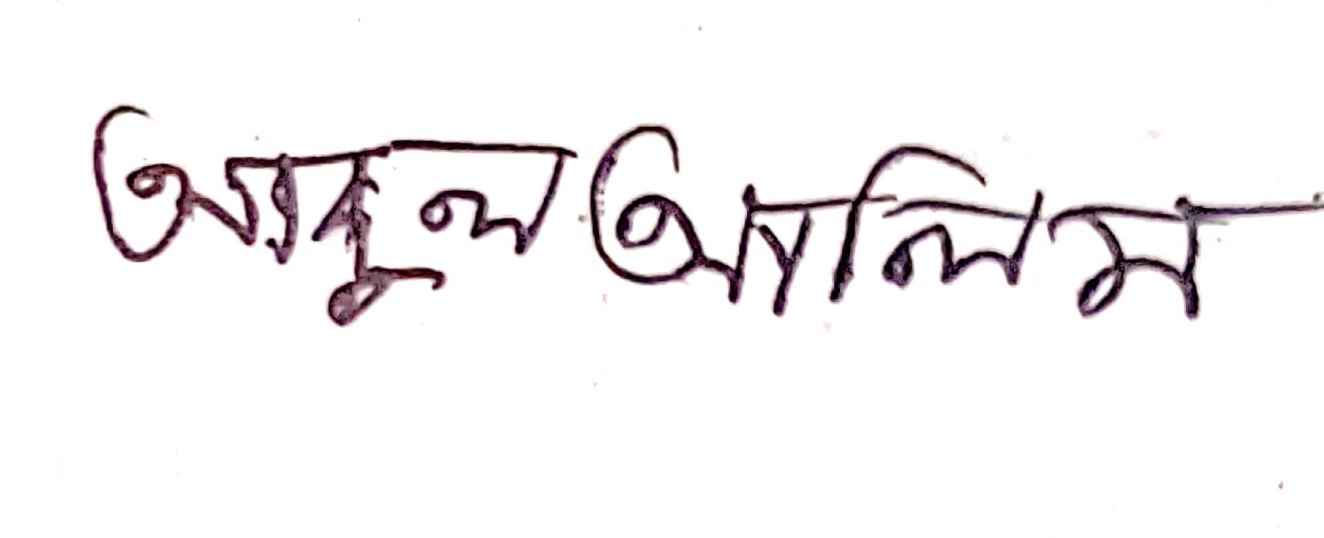 আবদুল আলিম